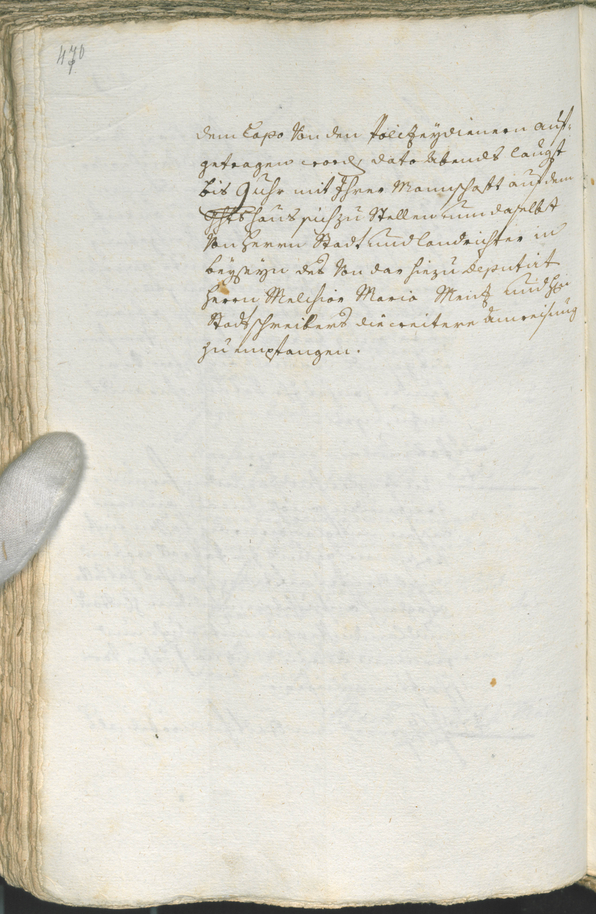 470
dem Capo von den Policeydienern auf-
getragen word, dato Abends laugst
bis 9 Uhr mit Ihrer Mannschaft auf dem
haus sich zu stellen und daselbst
von Herrn Stadt und Landrichter in
beyseyn des von dar hiezu deputirt
Herrn Melchior Maria Mentz und H
Stadtschreibers die weitere Anweisung
zu empfangen.